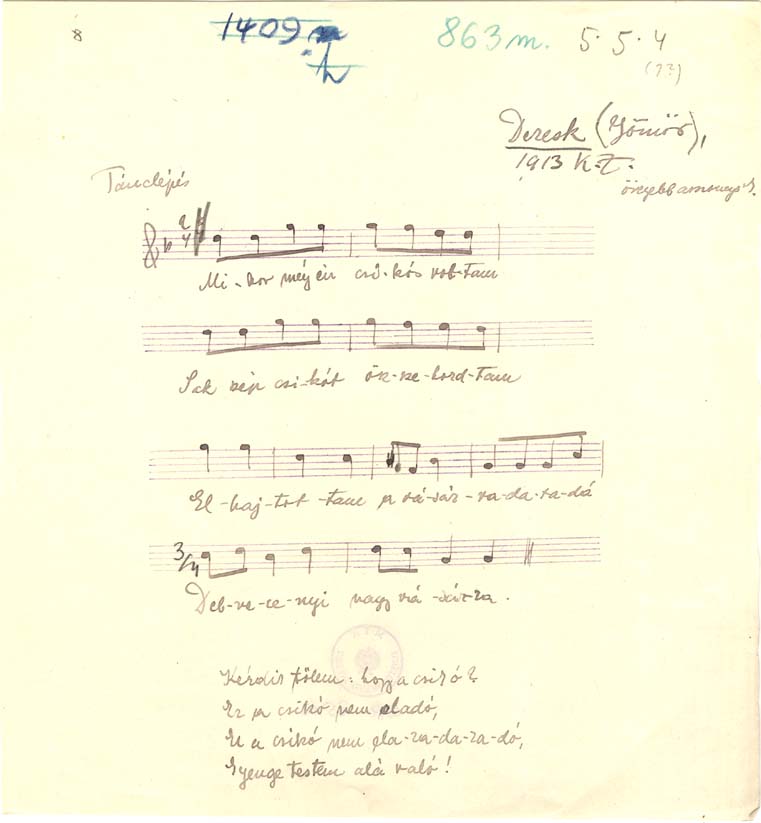 8
1409 m
863 m. 5. 5. 4
(??)
Deresk (Gömör),
1913 K. Z.
Tánclépés
2/4
Mi-kor méj én csi-kós vol-tam
Sok szép csi-kót ösz-sze-lord-tam
El-haj-tot-tam a vá-sár-ra-da-ra-dá
3/4
Deb-re-ce-nyi nagy vá-sár-ra.
Kérdik tőlem: hogy a csikó?
Ez a csikó nem eladó,
Ez a csikó nem ela-ra-da-ra-dó,
Gyenge testem alá való!